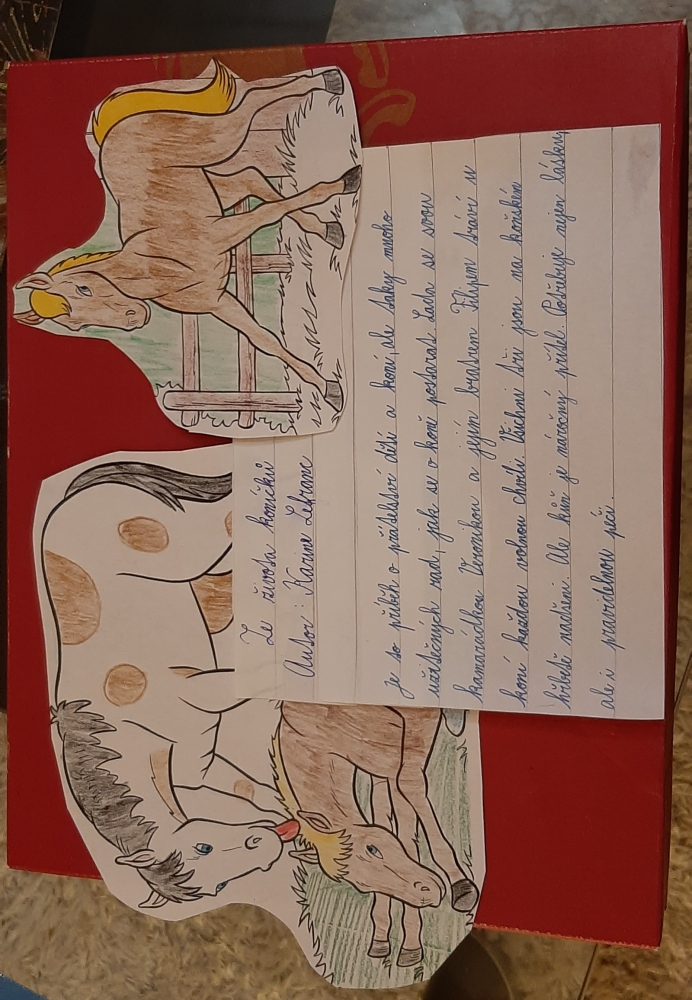 Ze života koníčků
Autor: Karine Lefranc
je to příběh o přátelství dětí a koní, ale taky mnoho
užitečných rad, jak se o koně postarat. Lada se svou
kamarádkou Veronikou a jejím bratrem Filipem tráví u
koní každou volnou chvíli. Všichni tři jsou na koňském
hřbetě nadšení. Ale kůň je náročný přítel. Potřebuje nejen lásku,
ale i pravidelnou péči.